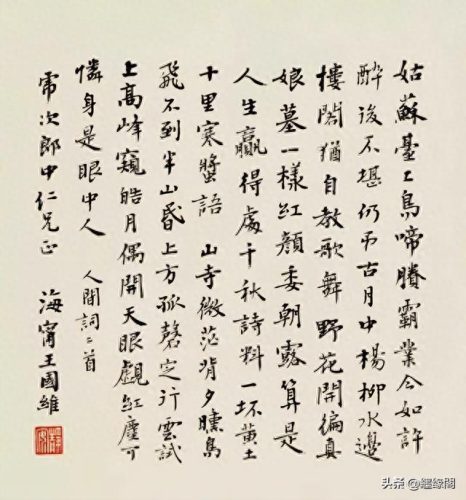 姑蘇臺上烏啼賸霸業今如許
醉後不堪仍弔古月中楊柳水邊
樓閣猶自教歌舞 野花開徧真
娘墓一樣紅顏委朝露算是
人生贏得處千秋詩料一坏黃土
十里寒螿語 山寺微茫背夕曛鳥
飛不到半山昏上方孤磬定行雲試
上高峰窺皓月偶開天眼覷紅塵可
憐身是眼中人 人間詞二首
次郎中仁兄正 海甯王國維
头条 @纏緣閣